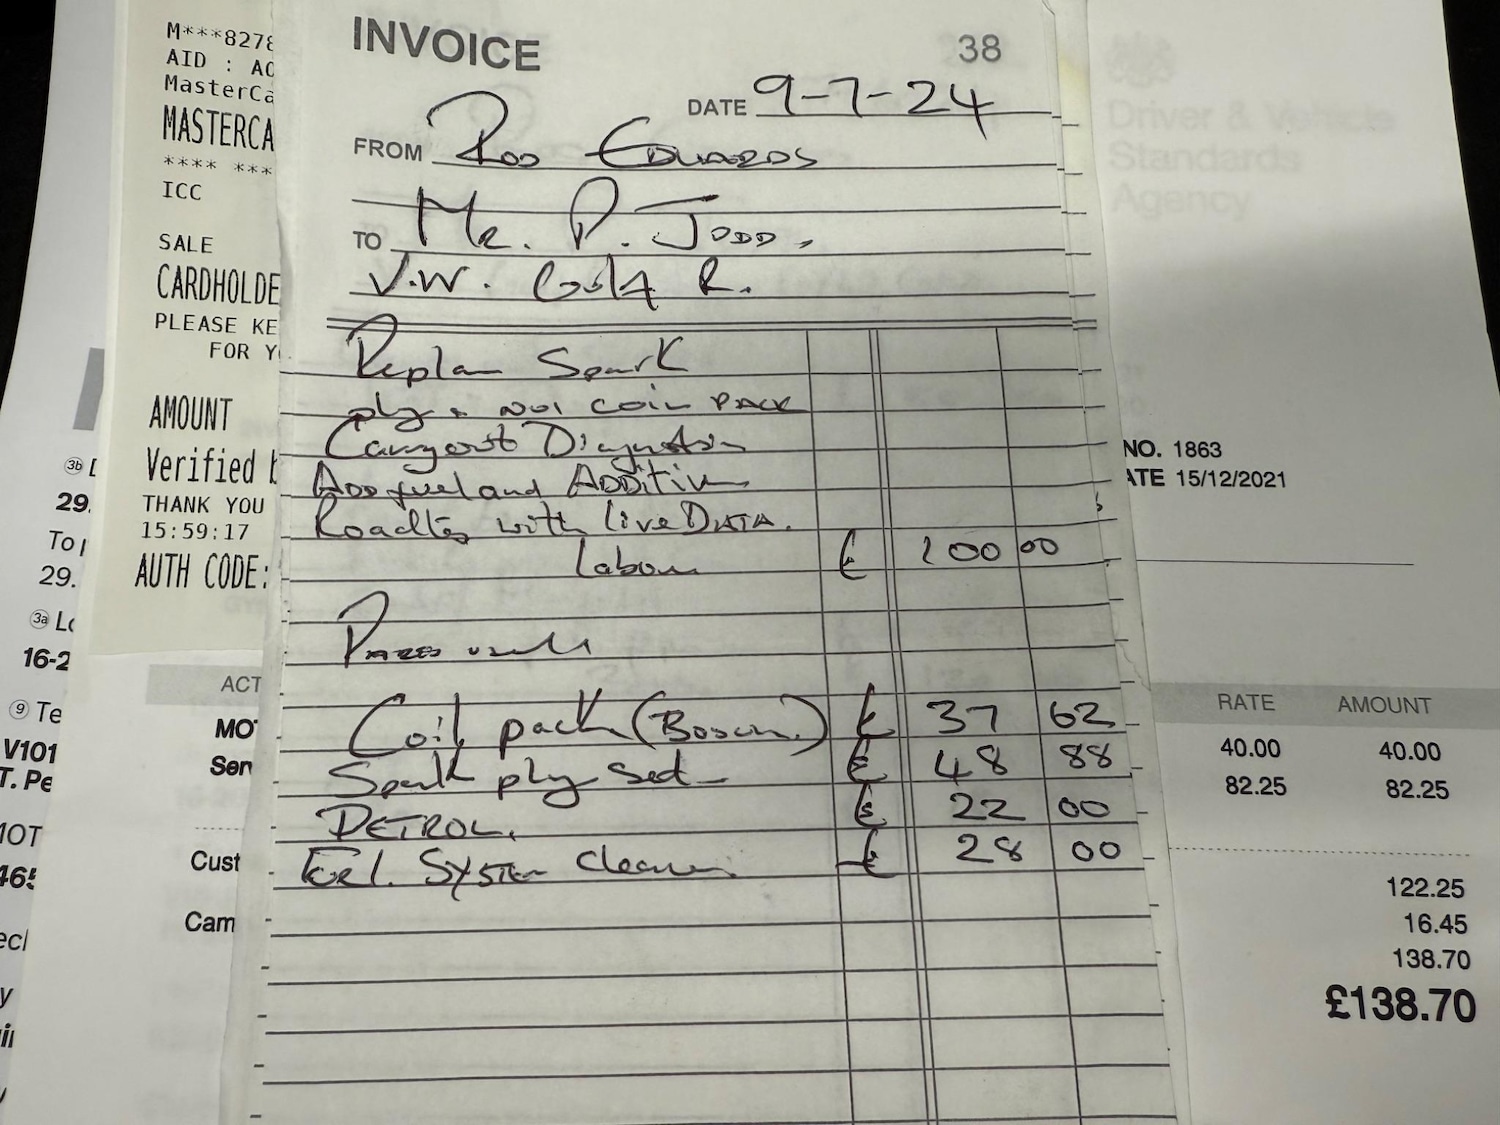 M***8278
AID : A0
MasterCa
MASTERCA
**** ***
ICC
SALE
CARDHOLDE
PLEASE KE
FOR Y
AMOUNT
Verified b
THANK YOU
15:59:17
AUTH CODE:
3b
29.
To
29.
3a Lo
16-2
9 Te
V101
T. Pe
MOT
465
ACT
MOT
Ser
Cust
Cam
INVOICE 38
DATE 9-7-24
FROM Rod Edwards
TO Mr. P. Jodd.
V.W. Golf R.
Replace Spark
plugs NO1 coil PACK
Carryout Diagnostic
Add fuel and Additive
Roadtest with live DATA.
Labour £ 100 00
PARTS used
Coil pack (Bosch) £ 37 62
Spark plug set £ 48 88
PETROL. £ 22 00
Fuel. SYSTEM cleaner £ 28 00
Driver & Vehicle
Standards
Agency
NO. 1863
ATE 15/12/2021
RATE AMOUNT
40.00 40.00
82.25 82.25
122.25
16.45
138.70
£138.70